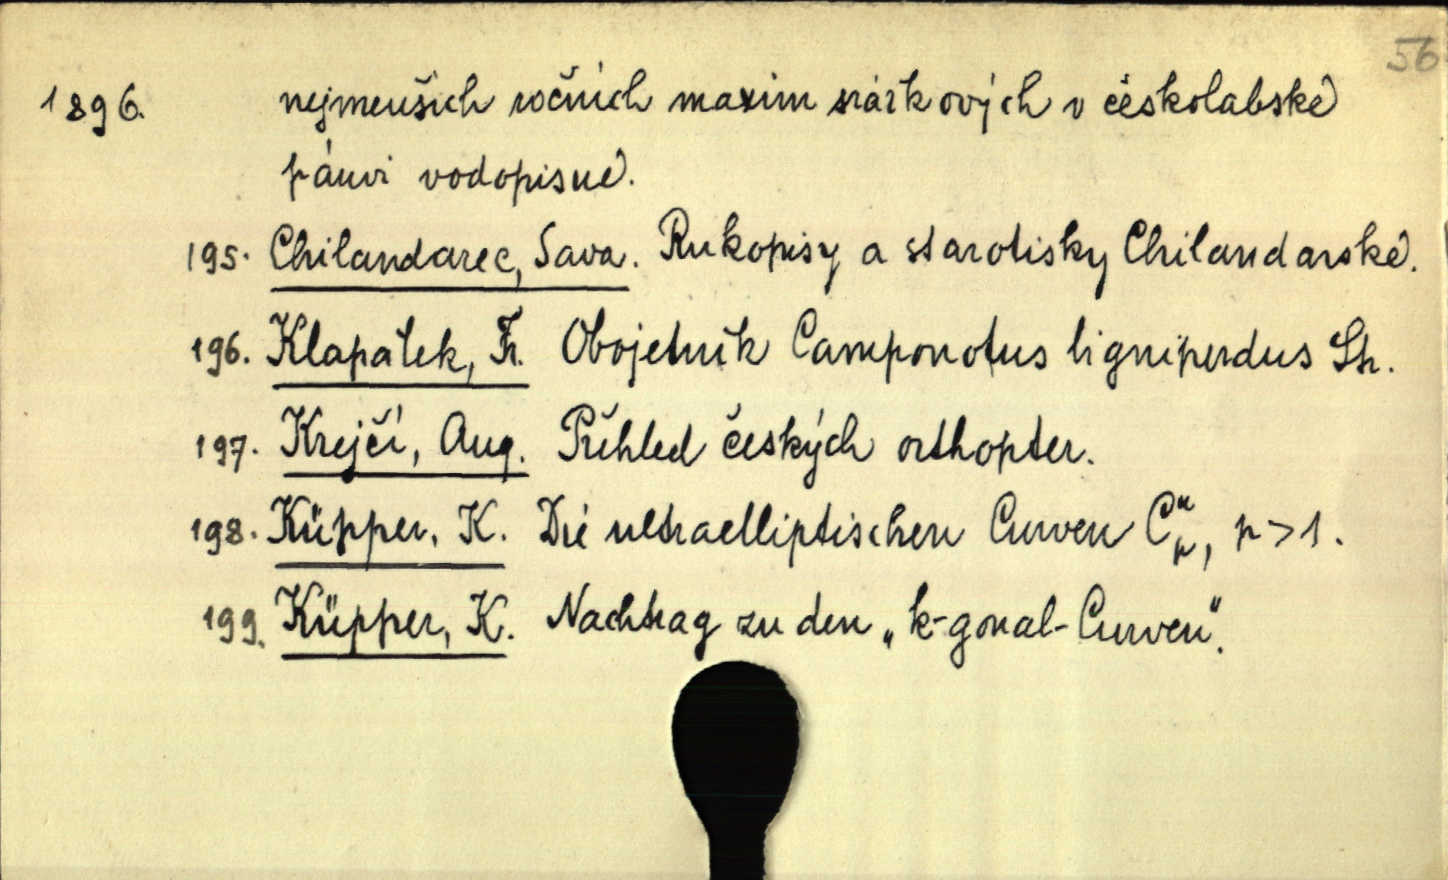 56
1896. nejmenších ročních maxim srážkových v českolabské
pánvi vodopisné.
195. Chilandarec, Sava. Rukopisy a starotisky Chilandarské.
196. Klapálek, Fr. Obojetník Camponotus ligniperdus Ltr.
197. Krejčí, Aug. Přehled českých orthopter.
198. Küpper, K. Die ultraelliptischen Curven Cⁿₚ, p > 1.
199. Küpper, K. Nachtrag zu den „k-gonal-Curven“.